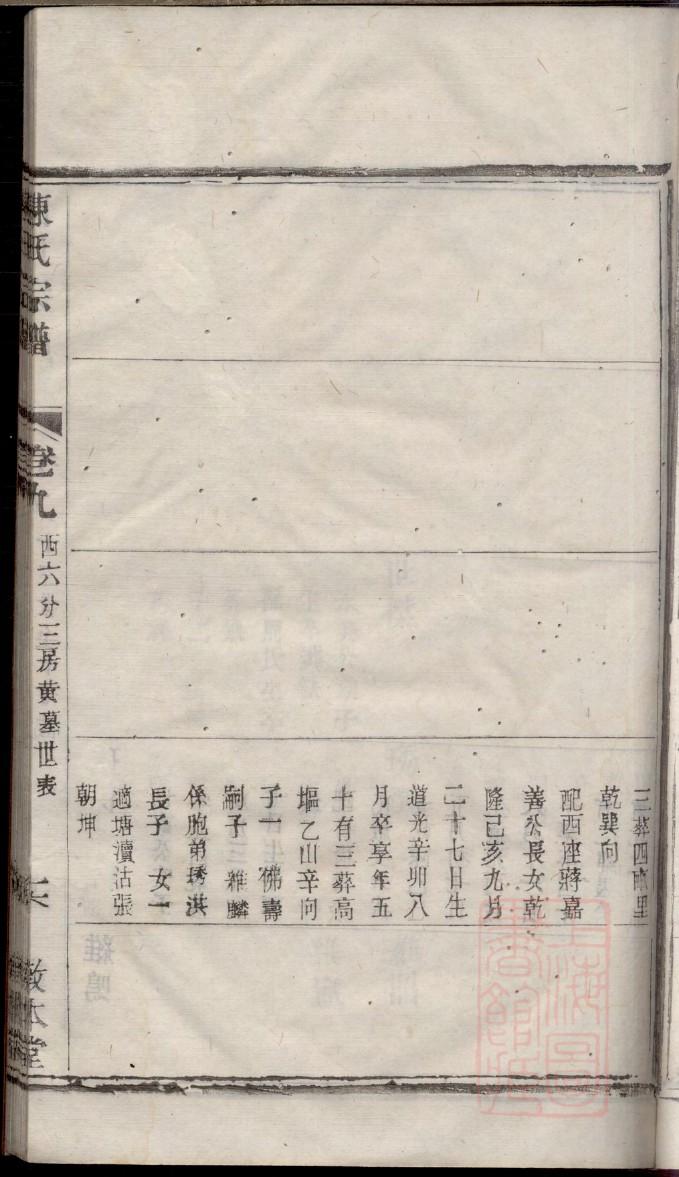 三葬四甽里
乾巽向
配西座蔣嘉
善公長女乾
隆己亥九月
二十七日生
道光辛卯八
月卒享年五
十有三葬高
堰乙山辛向
子一 佛壽
嗣子三雅麟
係胞弟琇洪
長子 女一
適塘瀆沽張
朝坤
陳氏宗譜
卷九
西六分三房黄墓世表
敦本堂
上海圖書館藏